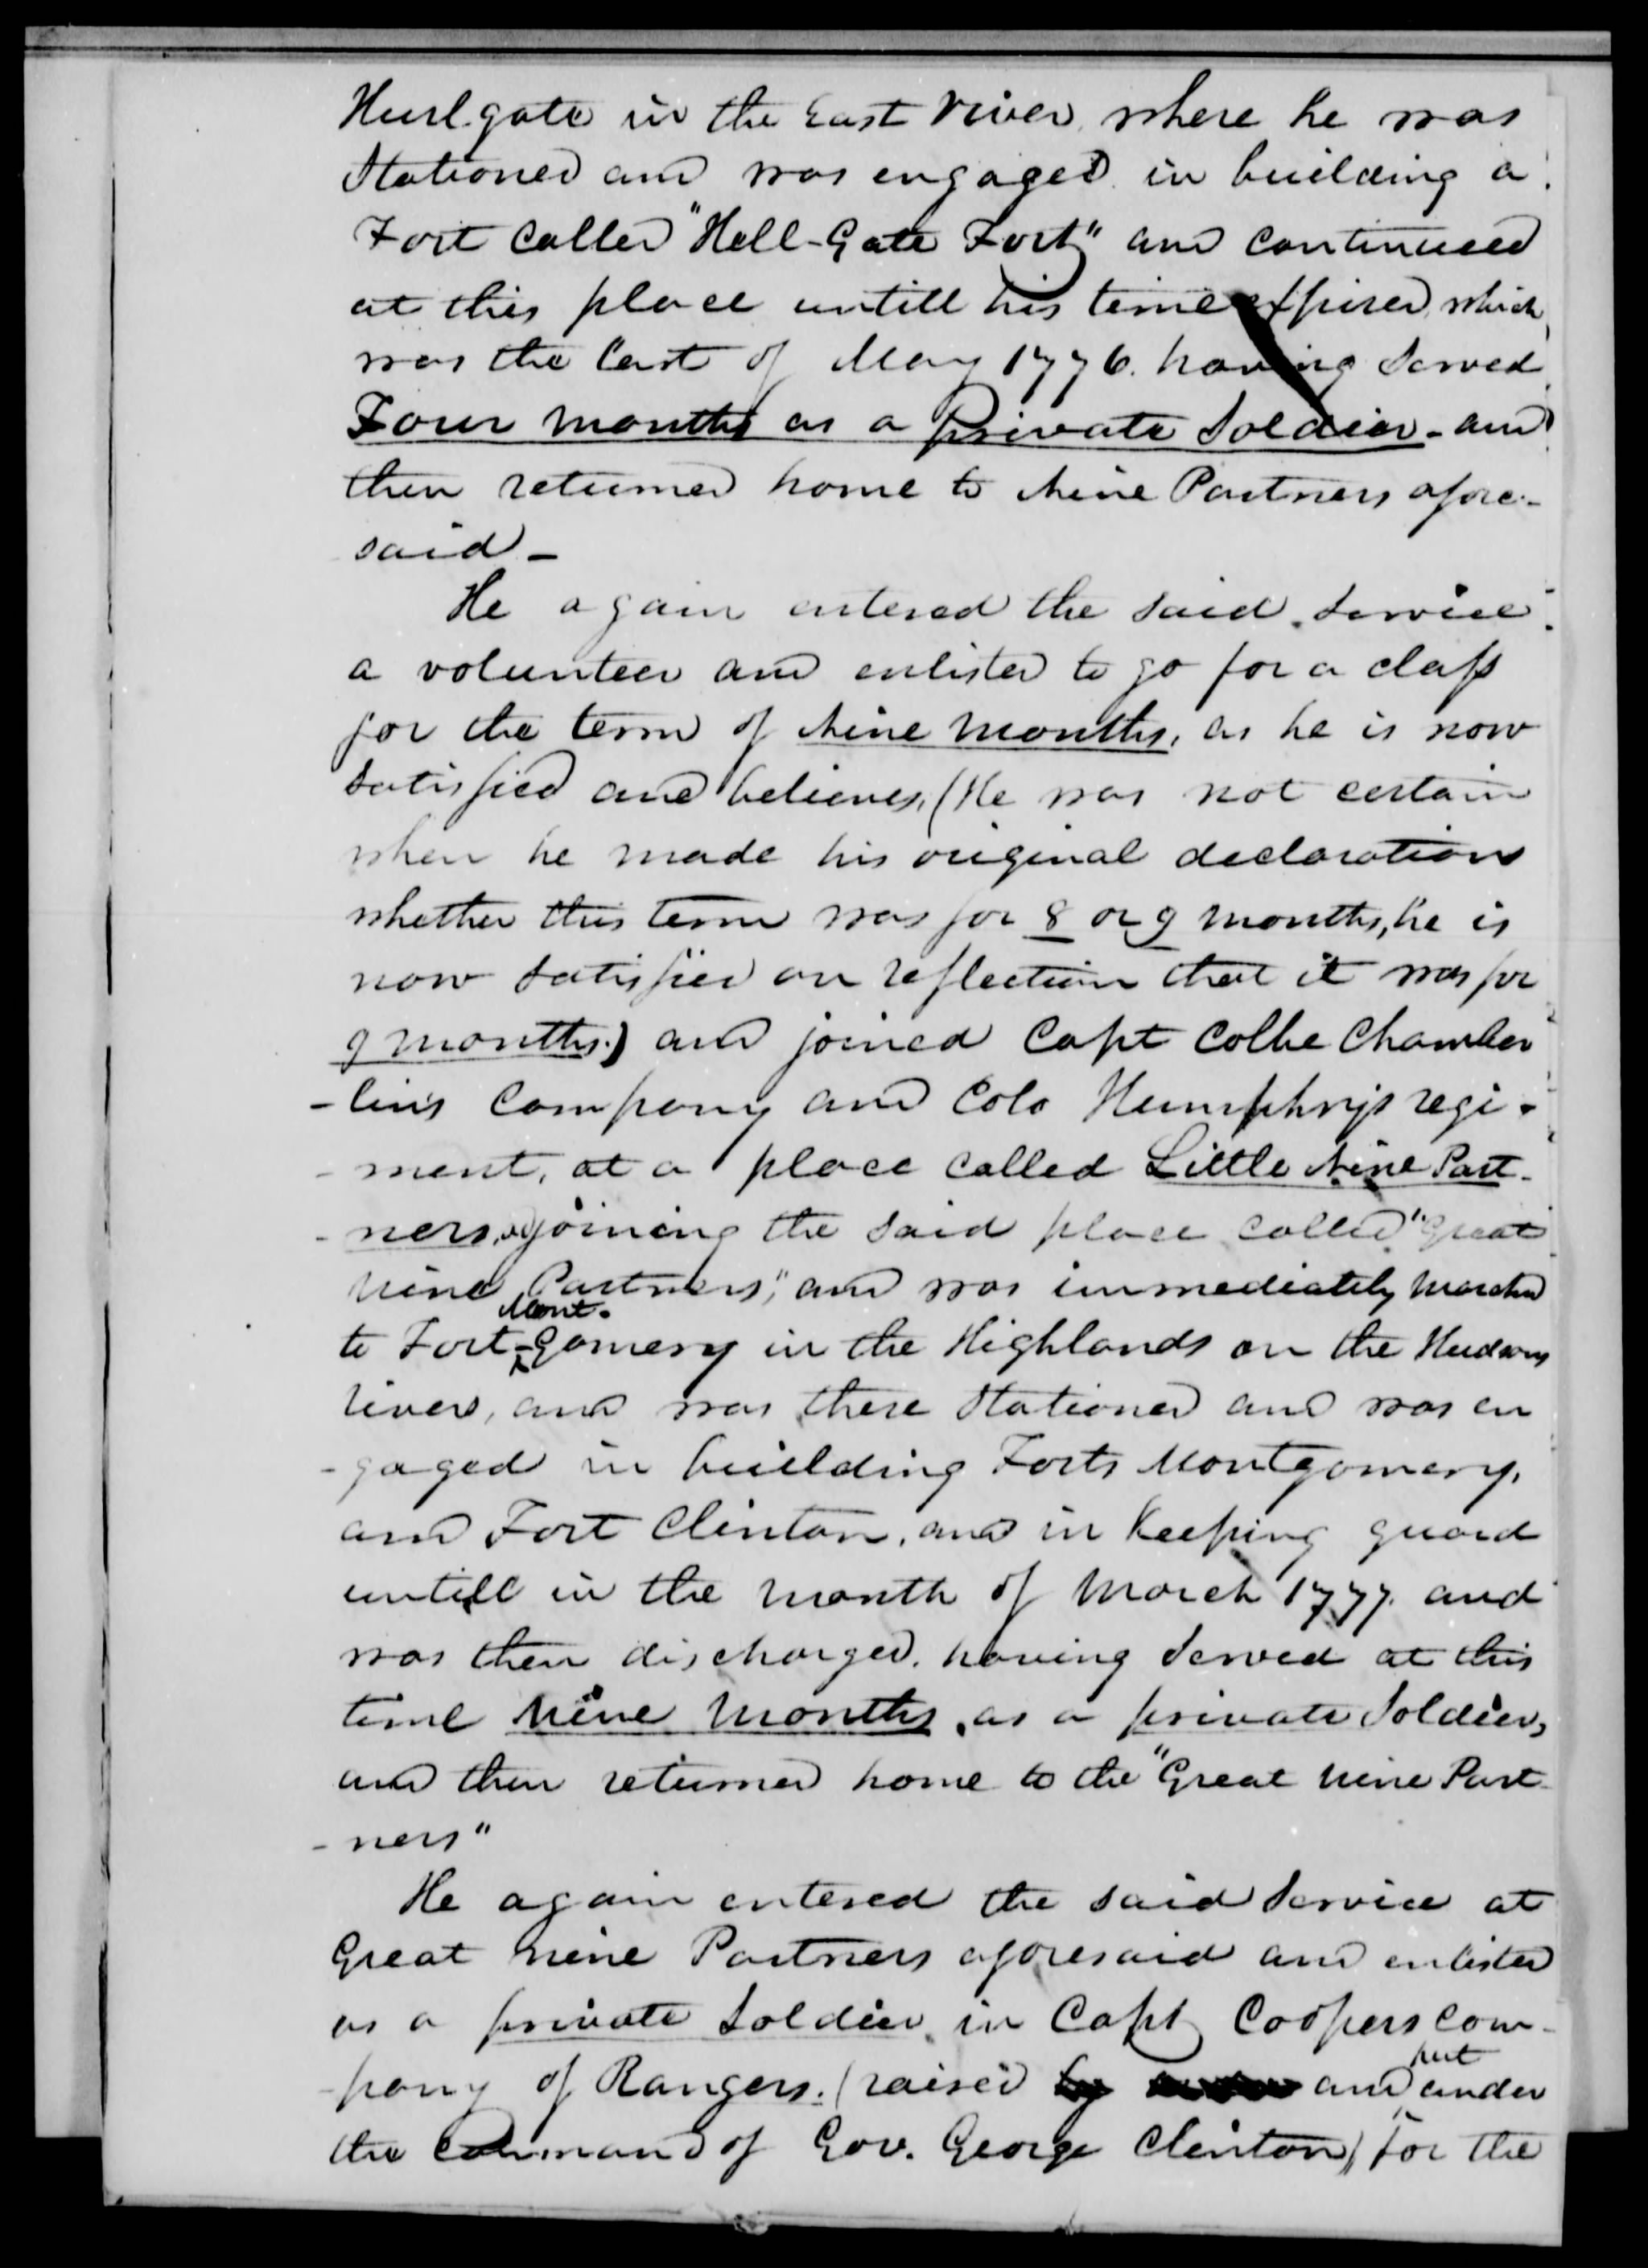 Hurl gate in the East River, where he was
Stationed and was engaged in building a
Fort called "Hell-Gate Fort" and continued
at this place untill his time expired, which
was the last of May 1776. having served
Four months as a private Soldier - and
then returned home to Nine Partners afore-
said -
He again entered the said service
a volunteer and enlisted to go for a class
for the term of Nine months, as he is now
satisfied and believes, (He was not certain
when he made his original declaration
whether this term was for 8 or 9 months, he is
now satisfied on reflection that it was for
9 months.) and joined Capt Colbe Chamber
-lin's Company and Colo Humphrys regi-
-ment, at a place called Little Nine Part-
-ners, ajoining the said place called "Great
Nine Partners", and was immediately marched
to Fort Mont-gomery in the Highlands on the Hudsons
River, and was there Stationed and was en
-gaged in building Forts Montgomery,
and Fort Clinton, and in keeping guard
untill in the month of March 1777. and
was then discharged, having served at this
time Nine Months, as a private Soldier,
and then returned home to the "Great Nine Part-
-ners"
He again entered the said service at
Great Nine Partners aforesaid and enlisted
as a private Soldier, in Capt Coopers com-
-pany of Rangers. (raised by and put under
the command of Gov. George Clinton) for the